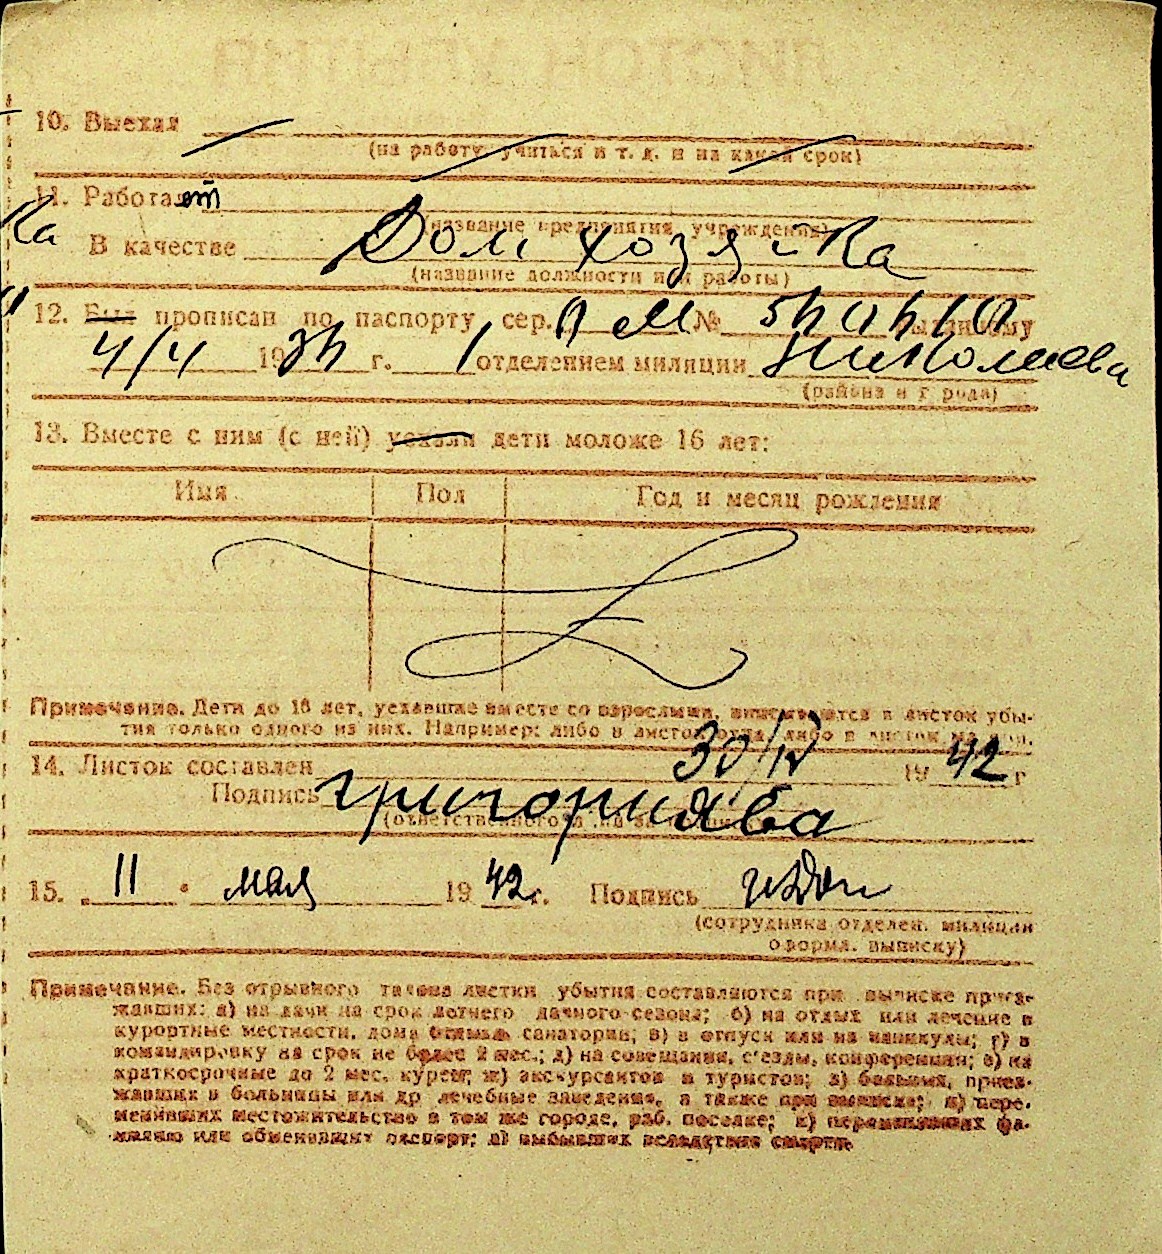 10. Выехал
(на работу, учиться и т. д. и на какой срок)
11. Работает
(название предприятия, учреждения)
ка
В качестве Дом хозяйка
(название должности или работы)
12. Был прописан по паспорту сер. № выданному
4/4 19 г. 1 отделением милиции Николаева
(района и города)
13. Вместе с ним (с ней) уехали дети моложе 16 лет:
Имя Пол Год и месяц рождения
Примечание. Дети до 16 лет, уехавшие вместе со взрослыми, вписываются в листок убы-
тия только одного из них. Например: либо в листок отца, либо в листок
14. Листок составлен 30/IV 1942 г
Подпись Григориява
15. 11 • мая 1942 г. Подпись
(сотрудника отделен. милиции
оформл. выписку)
Примечание. Без отрывного талона листки убытия составляются при выписке приез-
жавших: а) на дачи на срок летнего дачного сезона; б) на отдых или лечение в
курортные местности, дома отдыха, санатории; в) в отпуск или на каникулы; г) в
командировку на срок не более 2 мес.; д) на совещания, с'езды, конференции; е) на
краткосрочные до 2 мес. курсы; ж) экскурсантов и туристов; з) больных, приез-
жавших в больницы или др лечебные заведения, а также при выписке; и) пере-
менивших местожительство в том же городе, раб. поселке; к) переменивших фа-
милию или обменивших паспорт; л) выбывших вследствие смерти.